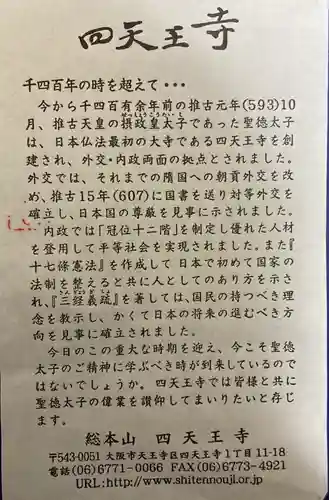 四天王寺
千四百年の時を超えて・・・
今から千四百有余年前の推古元年(593)10
月、推古天皇の摂政皇太子であった聖徳太子
せっしょうこうたいし
は、日本仏法最初の大寺である四天王寺を創
建され、外交・内政両面の拠点とされました。
外交では、それまでの隋国への朝貢外交を改
め、推古15年(607)に国書を送り対等外交を
確立し、日本国の尊厳を見事に示されました。
内政では『冠位十二階』を制定し優れた人材
を登用して平等社会を実現されました。また『
十七條憲法』を作成して日本で初めて国家の
法制を整えると共に人としてのあり方を示さ
れ、『三経義疏』を著しては、国民の持つべき理
念を教示し、かくて日本の将来の進むべき方
向を見事に確立されました。
今日のこの重大な時期を迎え、今こそ聖徳
太子のご精神に学ぶべき時が到来しているので
はないでしょうか。四天王寺では皆様と共に
聖徳太子の偉業を讃仰してまいりたいと存じ
ます。
総本山 四天王寺
〒543-0051 大阪市天王寺区四天王寺1丁目11-18
電話(06)6771-0066 FAX(06)6773-4921
URL:http://www.shitennouji.or.jp